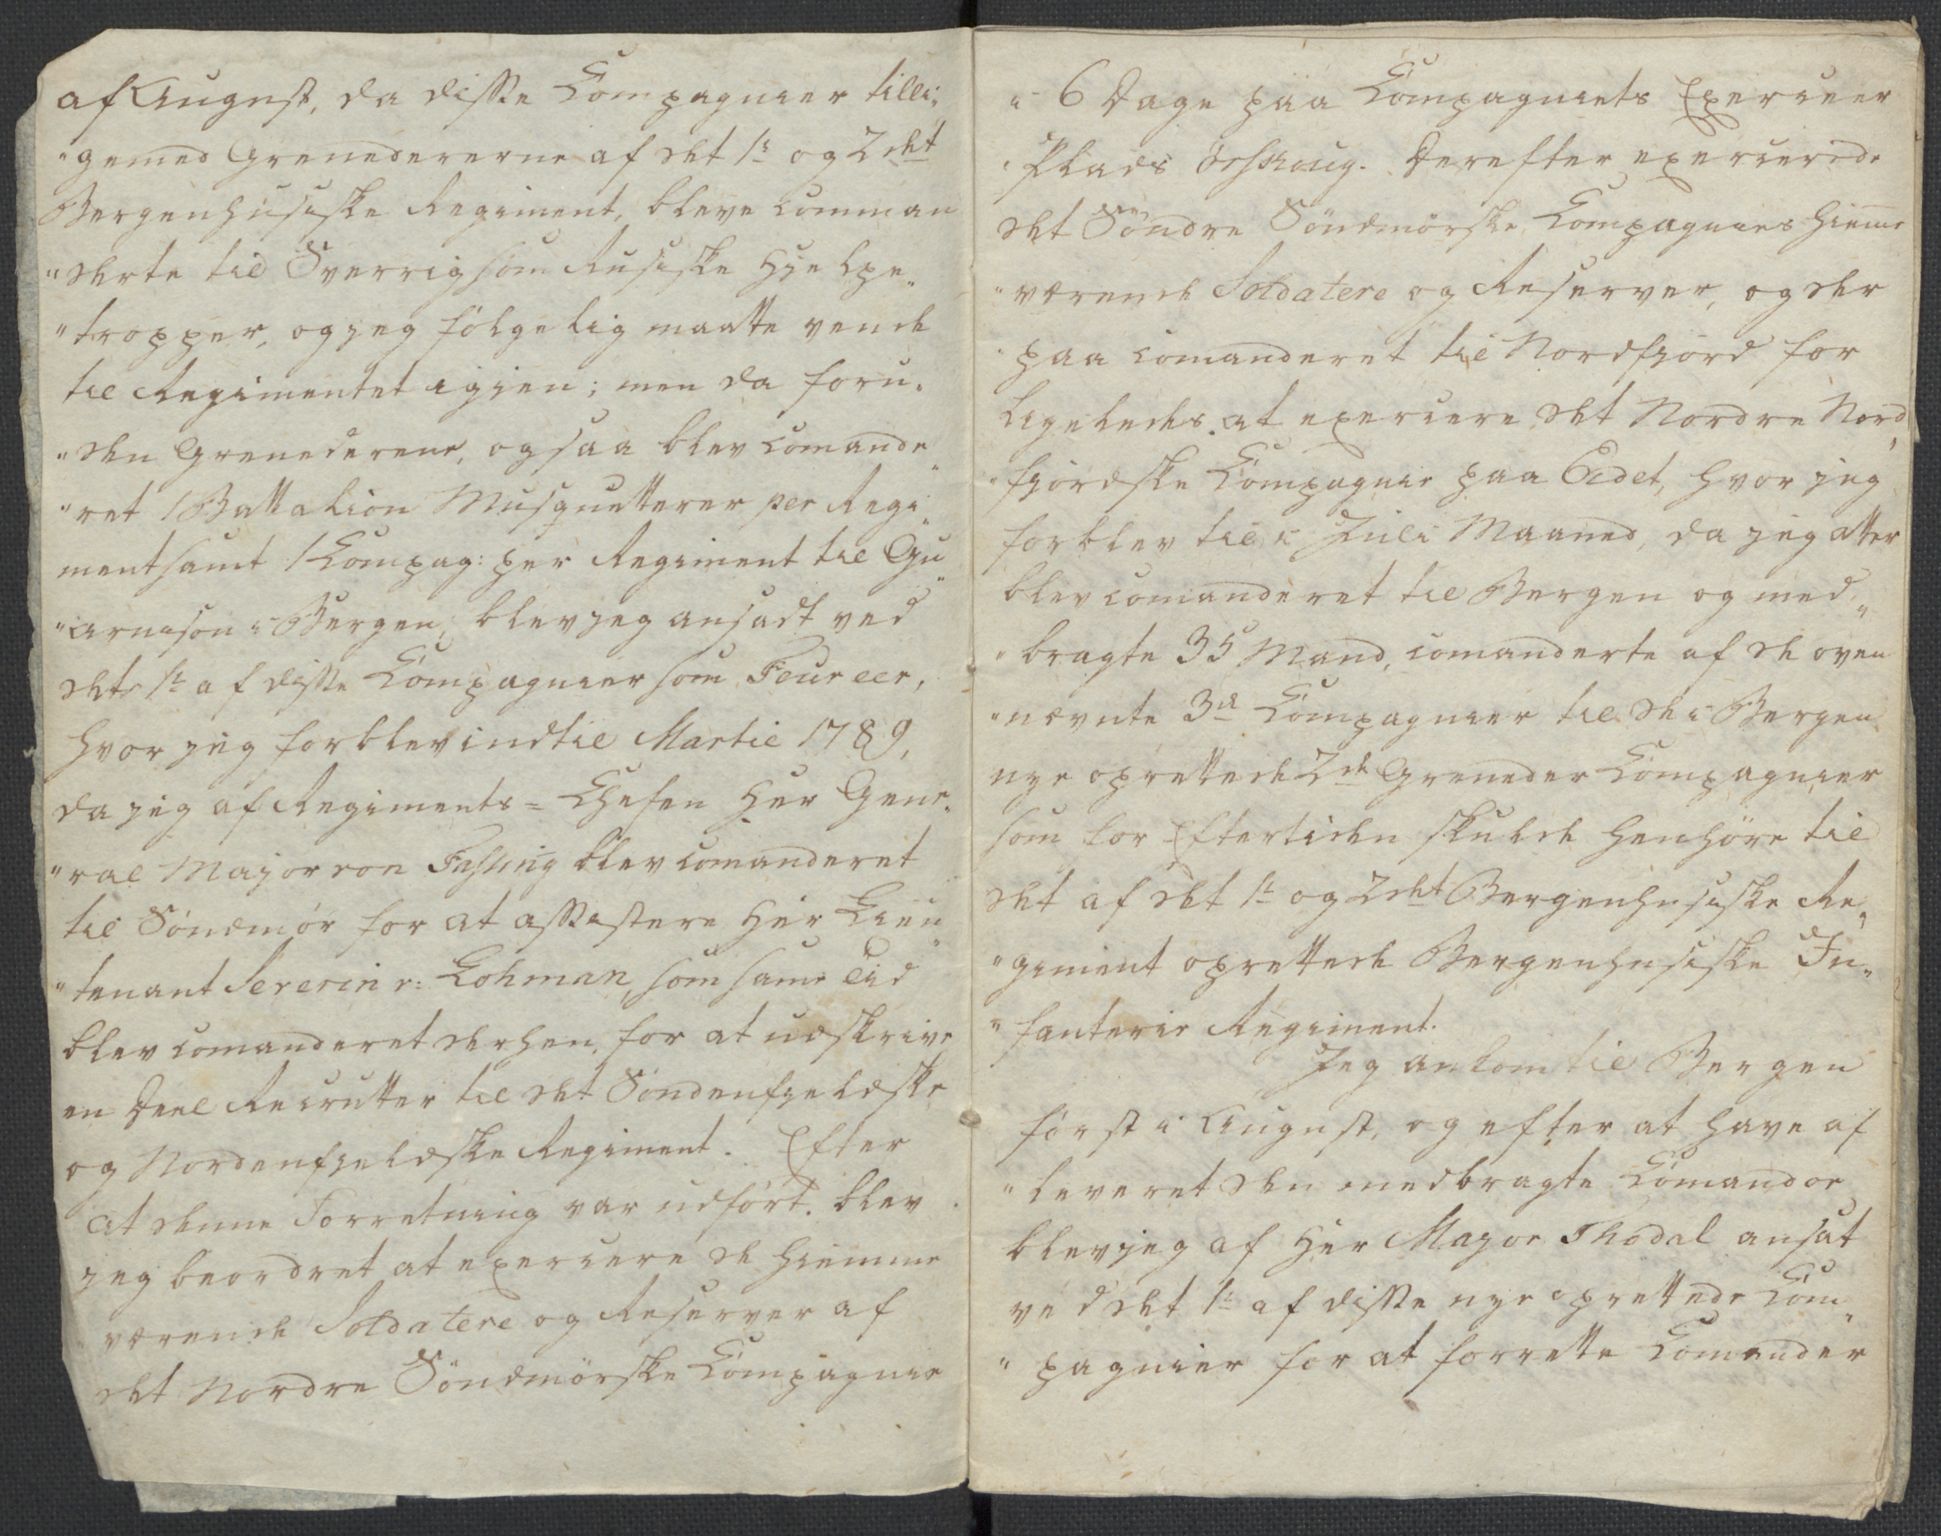 af August, da disse Compagnier tilli„
„gemed Grenedererne af det 1ste og 2det
Bergenhusiske Regiment, bleve comman
„derte til Sverrig som Rusiske Hjelpe„
„tropper, og jeg fölgelig maatte vende
til Regimentet igjen; men da foru„
„den Grenederene, ogsaa blev comande„
„ret 1 Battalion Musquetterer per Regi„
ment samt 1 Compag: per Regiment til Gu„
„arnison i Bergen, blev jeg ansadt ved
det 1ste af disse Compagnier som Foureer,
hvor jeg forblev indtil Martii 1789,
da jeg af Regiments=Chefen Her Gene„
„ral Major von Fasting blev comanderet
til Söndmör for at assistere Her Lieu„
„tenant Severin v: Lohman, som same Tid
blev comanderet derhen, for at udskrive
en Deel Recrutter til det Söndenfjeldske
og Nordenfjeldske Regiment. Efter
at denne Forretning var udfört. blev
jeg beordret at exercere de hiemme
værende Soldatere og Reserver af
det Nordre Söndmörske Compagnie
i 6 Dage paa Compagniets Exerceer
Plads Örschoug. Derefter exercerede
det Söndre Söndmörske Compagnies hieme
„værende Soldatere og Reserver, og der
paa comanderet til Nordfjord for
ligeledes at exercere det Nordre Nord„
„fjordske Compagnie paa Eidet, hvor jeg
forblev til i Juli Maaned, da jeg atter
blev comanderet til Bergen og med„
„bragte 35 Mand, comanderte af de oven
„nævnte 3de Compagnier til de i Bergen
nye oprettede 2de Greneder Compagnier
som for Eftertiden skulde henhöre til
det af det 1ste og 2det Bergenhusiske Re„
„giment oprettede Bergenhusiske In„
„fanterie Regiment.
Jeg ankom til Bergen
först i August, og efter at have af
„leveret den medbragte Comandoe
blev jeg af Her Major Thodal ansat
ved det 1ste af disse nye oprettede Com„
„pagnier for at forrette Comander